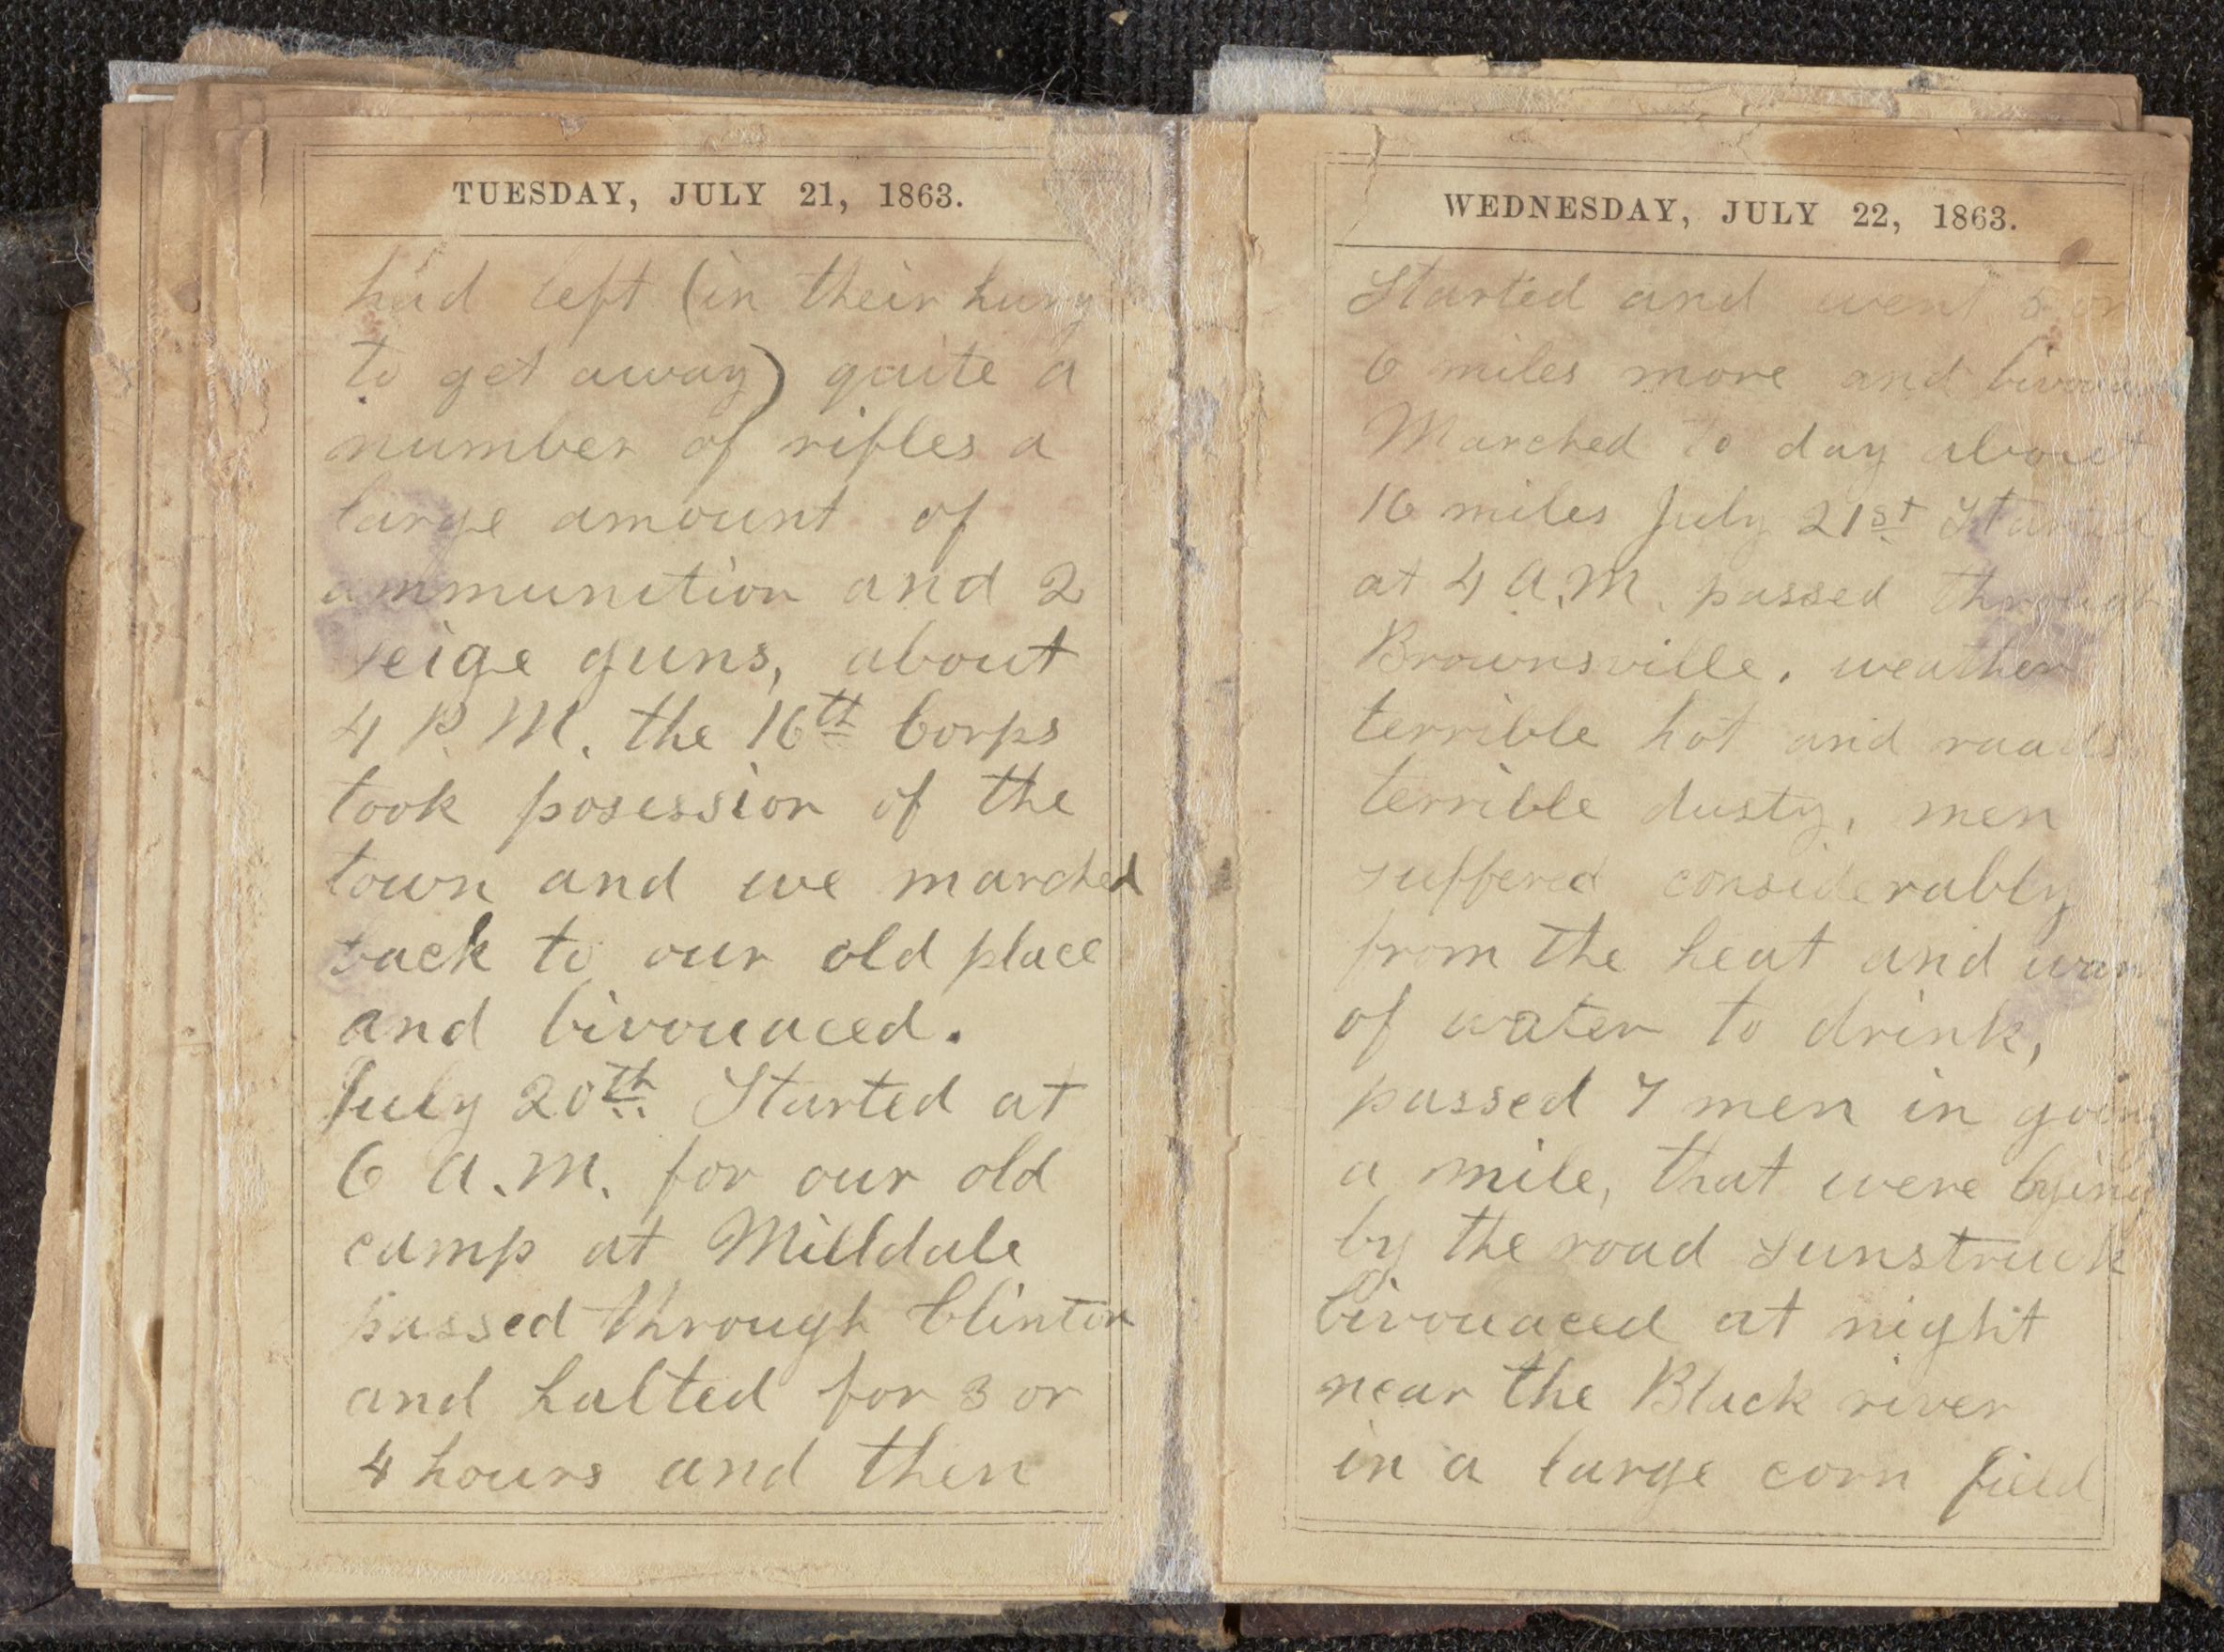 TUESDAY, JULY 21, 1863.
had left (in their hurry
to get away) quite a
number of rifles a
large amount of
ammunition and 2
seige guns, about
4 P.M. the 16th Corps
took posession of the
town and we marched
back to our old place
and bivouaced.
July 20th Started at
6 A.M. for our old
camp at Milldale
passed through Clinton
and halted for 3 or
4 hours and then
WEDNESDAY, JULY 22, 1863.
Started and went 5 or
6 miles more and
Marched to day about
16 miles July 21st Started
at 4 A.M. passed through
Brownsville, weather
terrible hot and roads
terrible dusty, men
suffered considerably
from the heat and wan
of water to drink,
passed 7 men in going
a mile, that were lying
by the road sunstruck
bivouaced at night
near the Black river
in a large corn field